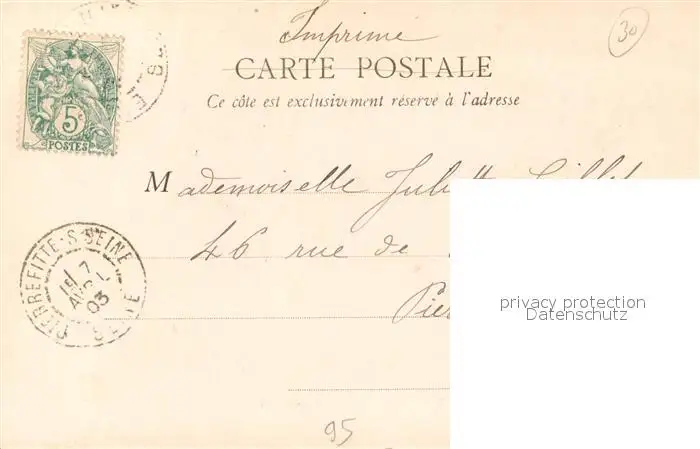 Imprimé
30
CARTE POSTALE
Ce côte est exclusivement réservé à l'adresse
5c
POSTES
Mademoiselle
46 rue de
PIERREFITTE-S-SEINE
7
AVRIL
03
SEINE
privacy protection
Datenschutz
95